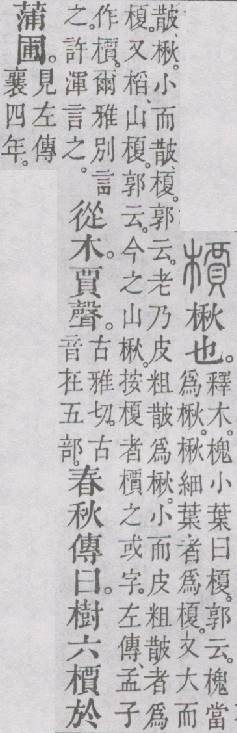 檟
楸也。
釋木。槐小葉曰榎。郭云。槐當
爲楸。楸細葉者爲榎。又大而
皵、楸。小而皵、榎。郭云。老乃皮粗皵爲楸。小而皮粗皵者爲
榎。又槄、山榎。郭云。今之山楸。按榎者檟之或字。左傳、孟子
作檟。爾雅別言
之。許渾言之。
從木。賈聲。
古雅切。古
音在五部。
春秋傳曰。樹六檟於
蒲圃。
見左傳
襄四年。